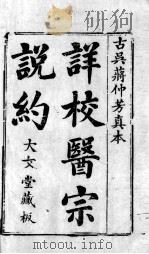 古吳蔣仲芳真本
詳校醫宗
說約
大文堂藏板
mtoou.info
mtoou.info